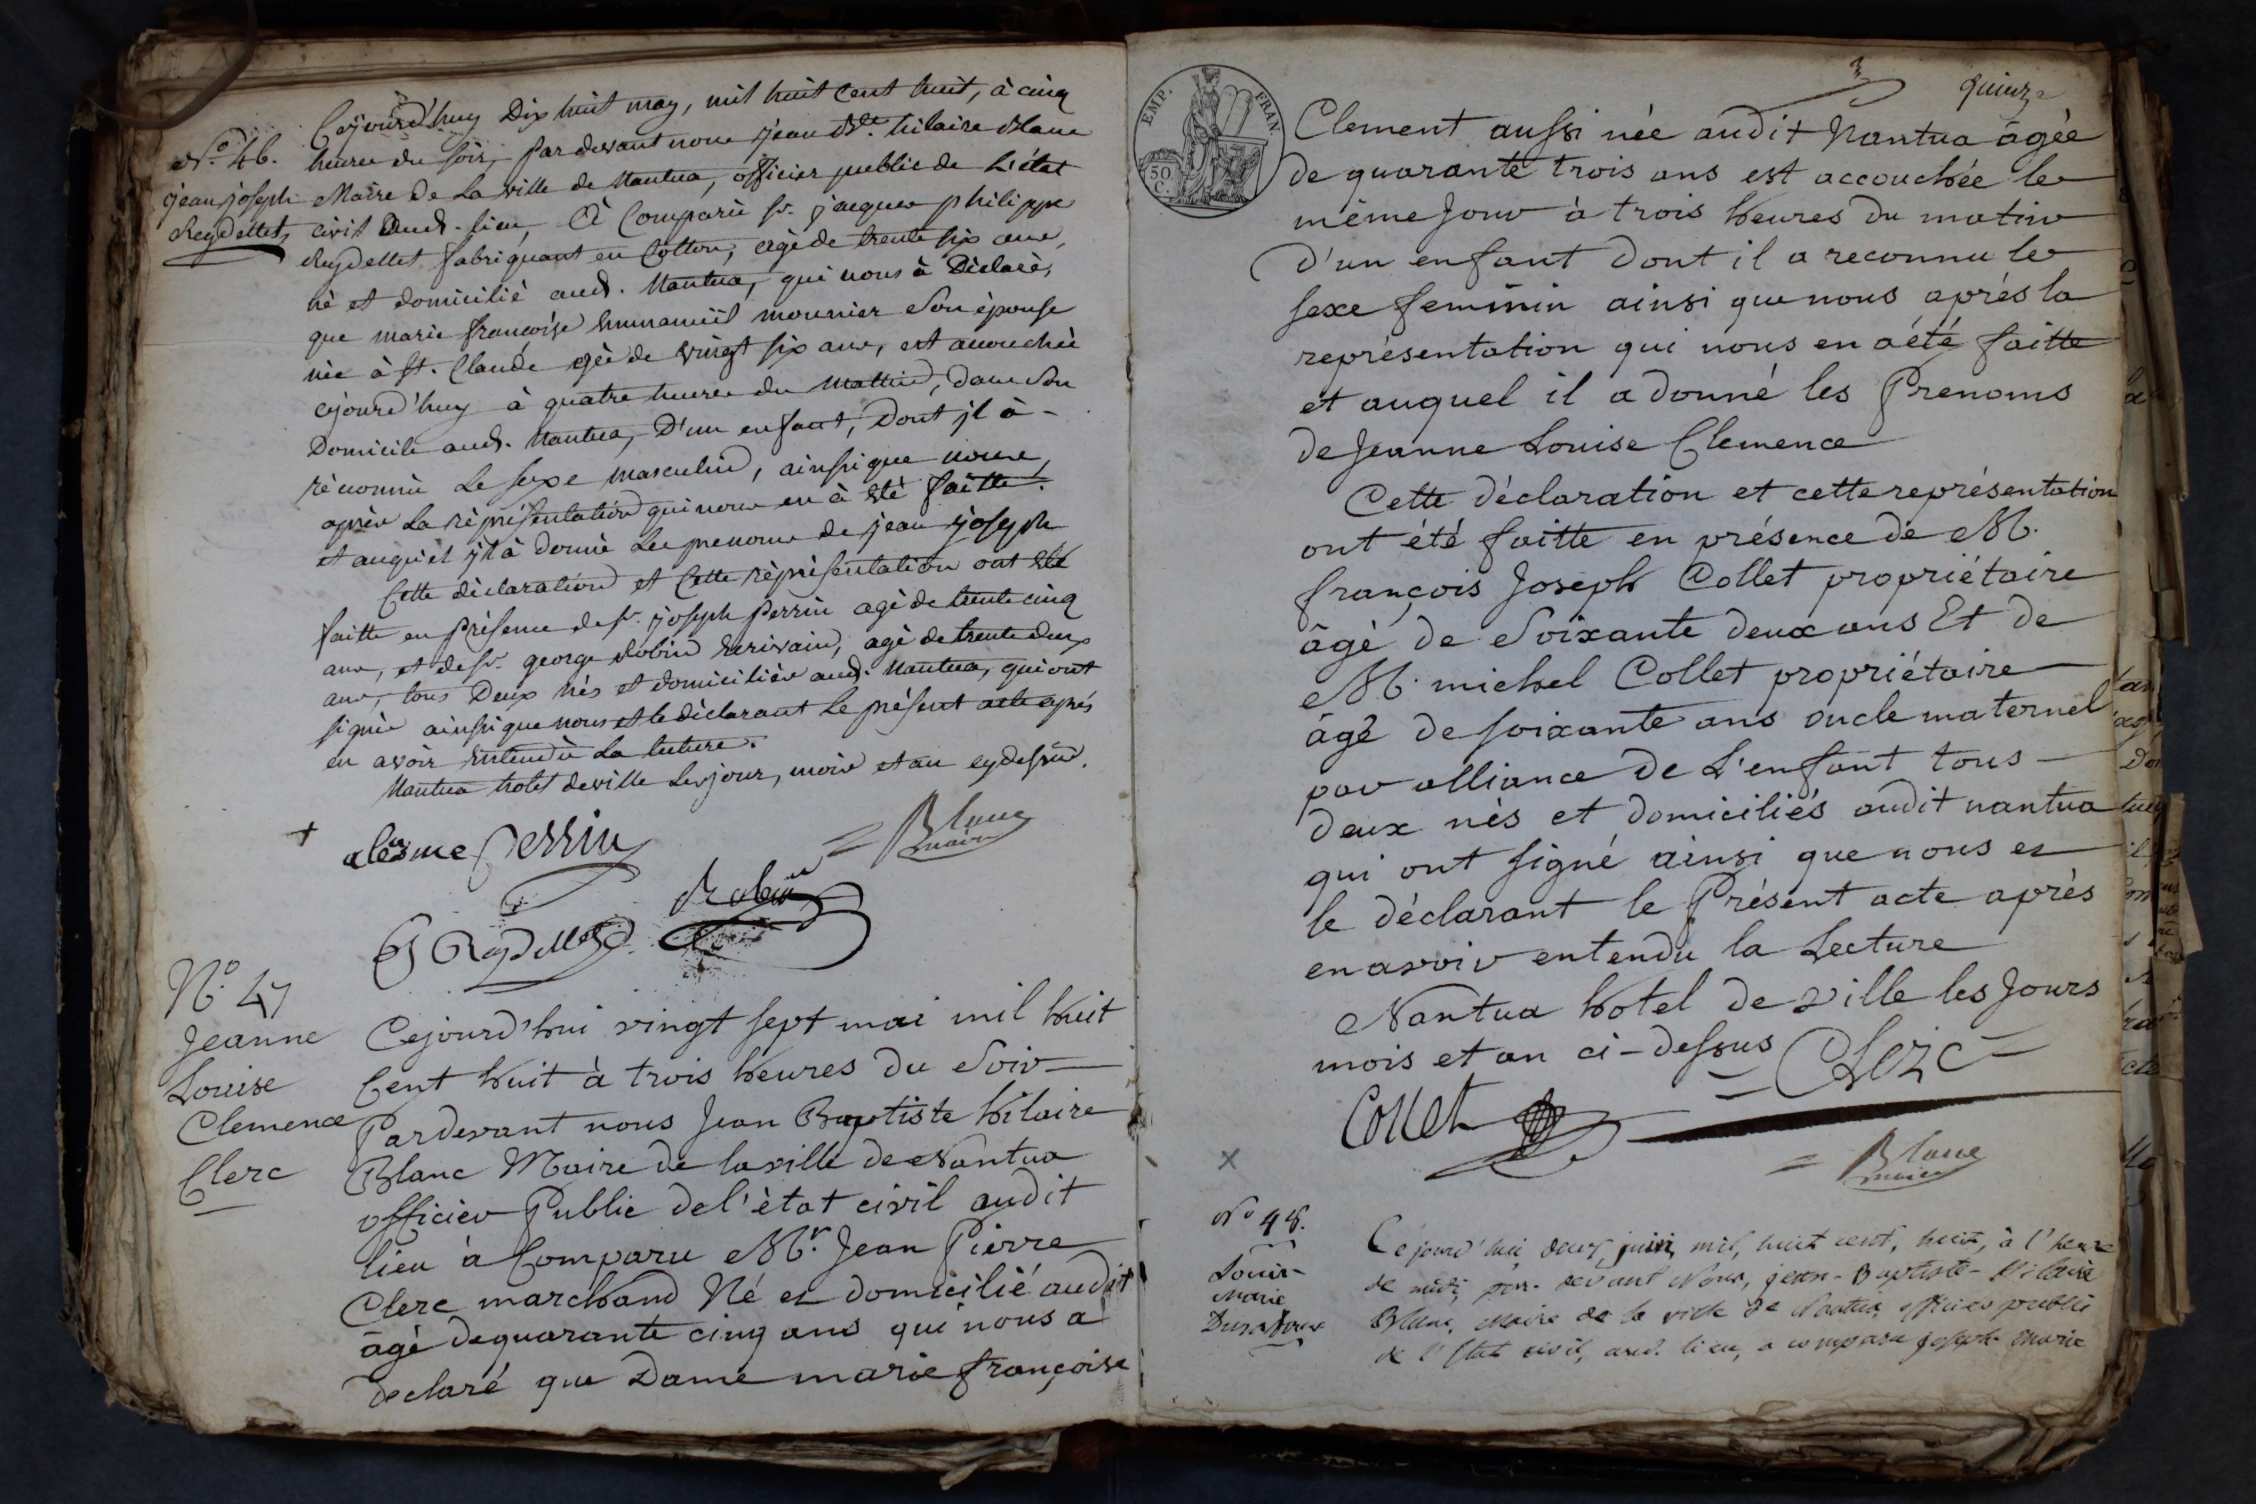 Cejourd'huy Dix huit may, mil huit Cent huit, à cinq
N.o 46.
jean joseph
Reydellet,
heures du soir, par devant nous jean Bte. hilaire Blanc
Maire de La ville de Nantua, officier public de L'état
civil aud. lieu, à Comparù sr. jacques philippe
Reydellet fabriquant en Cotton, agè de trente six ans,
nè et domicilié aud. Nantua, qui nous à Déclarè,
que marie françoise Emmanuël mounier Son épouse
née à St. Claude agèe de vingt six ans, est acouchèe
cejourd'huy à quatre heures du mattin, dans Son
Domicile aud. Nantua, D'un enfant, Dont jl à -
rèconnù Le sexe masculin, ainsi que nous,
après La rèprésentation qui nous en à étè faitte.
et auquel jl à donnè Les prenoms de jean joseph
Cette dèclaration et Cette rèprésentation ont étè
faitte en Présence de sr. joseph Perrin agè de trente cinq
ans, et de sr. george Robin Ecrivain, agè de trente deux
ans, tous Deux nés et domiciliès aud. Nantua, qui ont
signès ainsi que nous et le dèclarant Le présent acte après
en avoir Entendù La lecture.
Nantua hotel de ville Les jour, mois et an cydessus.
Perrin
= Blanc
maire
Robin
Reydellet
N.o 47
Jeanne
Louise
Clemence
Clerc
Cejourd'hui vingt sept mai mil huit
Cent huit à trois heures du Soir
Pardevant nous Jean Baptiste hilaire
Blanc Maire de la ville de Nantua
officier Public de l'ètat civil audit
lieu à Comparu Mr. Jean Pierre
Clerc marchand Né et domicilié audit
âgè de quarante cinq ans qui nous a
declaré que Dame marie françoise
EMP. FRAN.
50
C.
quinze
Clement aussi née audit Nantua âgée
de quarante trois ans est accouchée le
même jour à trois heures du matin
d'un enfant dont il a reconnu le
sexe feminin ainsi que nous après la
représentation qui nous en a été faitte
et auquel il a donné les Prenoms
de Jeanne Louise Clemence
Cette déclaration et cette représentation
ont été faitte en présence de M.
françois Joseph Collet propriétaire
âgé de Soixante deux ans Et de
M. michel Collet propriétaire
âgé de soixante ans oncle maternel
par alliance de L'enfant tous
deux nès et domiciliés audit nantua
qui ont signé ainsi que nous et
le déclarant le Présent acte après
en avoir entendu la Lecture
Nantua hotel de ville les Jours
mois et an ci-dessus
= Clerc =
Collet
= Blanc
maire
No 48.
Louis
Marie
Cejourd'hui deux juin, mil, huit cent, huit, à l'heure
de midi, par-devant Nous, jean-Baptiste-Hilaire
Blanc, Maire de la ville de Nantua, officier public
de l'Etat civil, aud. lieu, a comparu joseph Marie